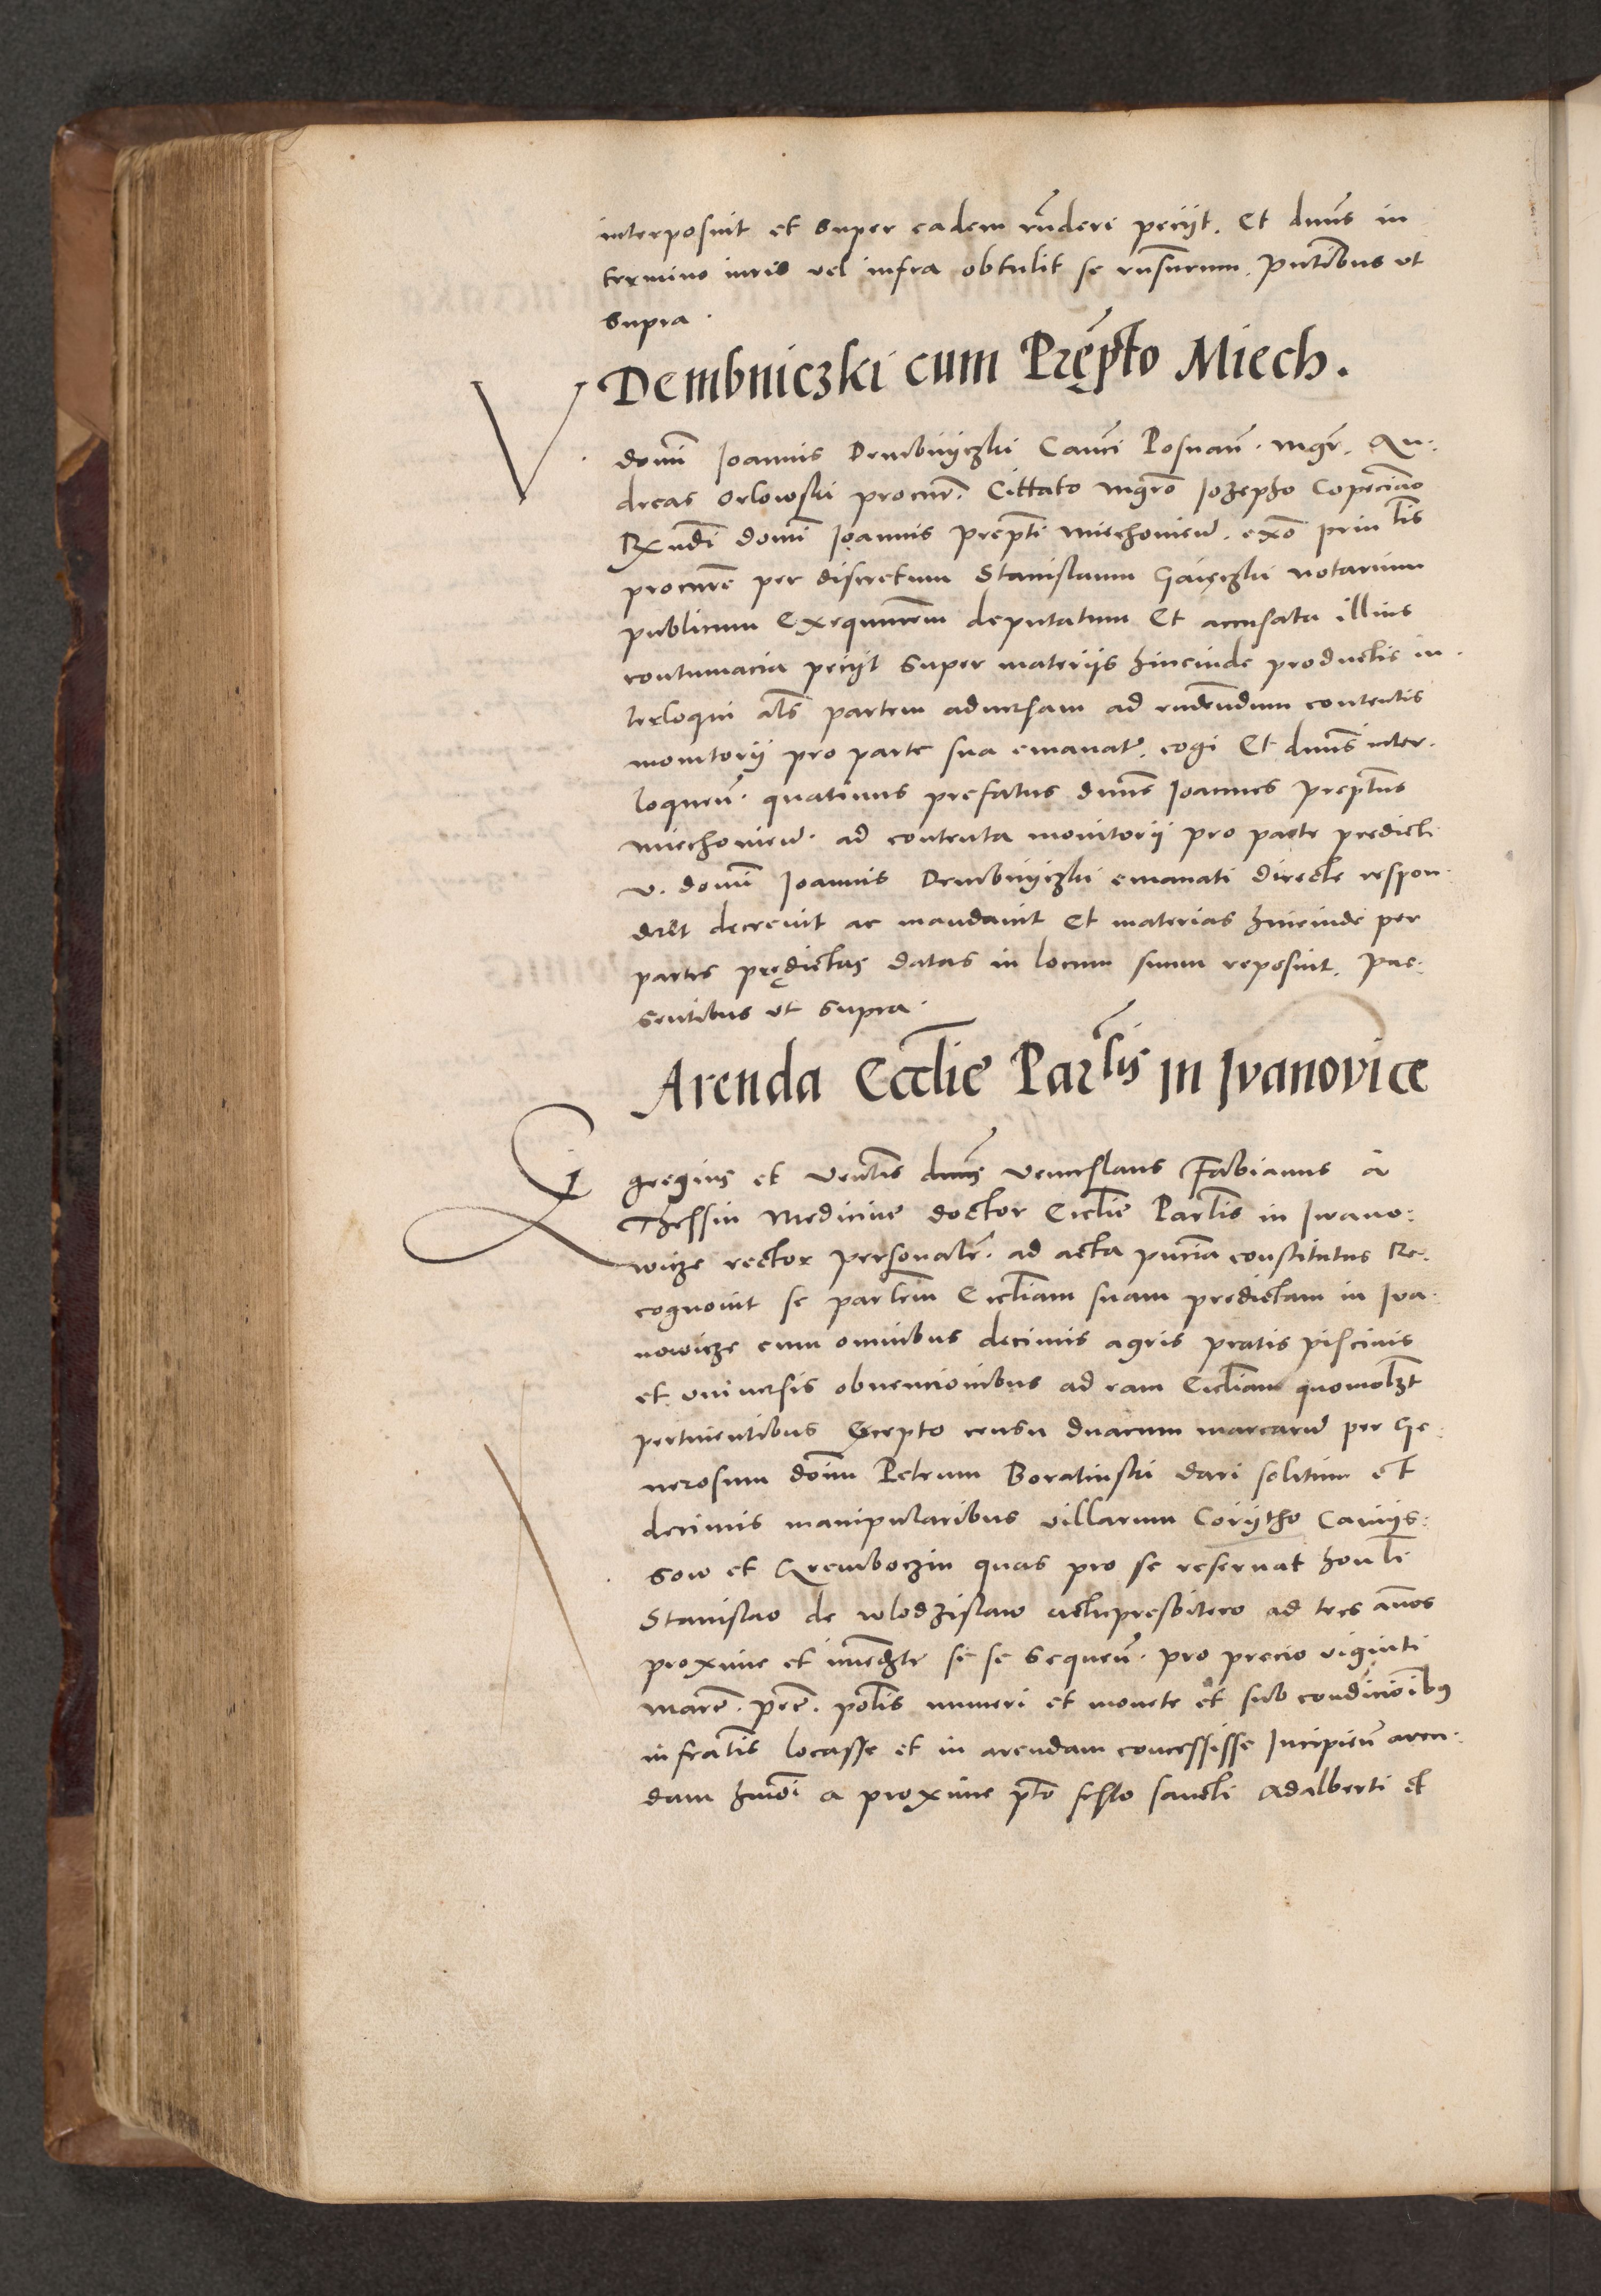 interposuit et super eadem rñderi peciit. Et dnus in
termino iuris vel infra obtulit se rñsurum. Pñtibus ut
supra.
Dembniczki cum Pręp̃to Miech.
V. domĩ Joannis Dembnyczki Canci Posnañ. mgr̃. An-
dreas Orlowski procur̃. Cittato mgrõ Jozepho Copeciano
Rx̃ndi domĩ Joannis Prep̃ti miechovien̄. exõ prin tis
procurẽ per discretum Stanislaum Gaięczki notarium
publicum Exequutorem deputatum Et accusata illius
contumacia peciit super materiis hincinde productis in-
terloqui als̃ partem adversam ad rñdendum contentis
monitorii pro parte sua emanat̃. cogi Et dnus inter-
loqueñ. quatinus prefatus dnus Joannes Prep̃tus
miechovien̄. ad contenta monitorii pro parte predicti
v. domĩ Joannis Dembnyczki emanati directe respon-
deat decrevit ac mandavit Et materias hincinde per
partes prędictas datas in locum suum reposuit. Pre-
sentibus ut supra.
Arenda Eccl̃ie Par̃lis in Jvanovice
Egregius et Ventis dnus Venceslaus Fabianus a
Thessin Medicine doctor Eccl̃ie Par̃lis in Iwano-
wicze rector personalr̃. ad acta pñcia constitutus Re-
cognovit se par̃lem Eccl̃iam suam predictam in Iva-
nowicze cum omnibus decimis agris pratis piscinis
et universis obvencionibus ad eam Eccl̃iam quomolꝫt
pertinentibus Excepto censu duarum marcarũ per Ge-
nerosum doĩm Petrum Boratinski dari solitum et
decimis manipularibus villarum Corytho Caniys-
sow et Krembocżin quas pro se reservat honli
Stanislao de Wlodzislaw Altipresbitero ad tres ãnos
proxime et imẽdte se se sequeñ. pro precio viginti
marcr̃. pecr̃. poltis numeri et monete et sub condicioĩbus
infratis locasse et in arendam concessisse Incipieñ aren-
dam hmõi a proxime pto festo sancti Adalberti et